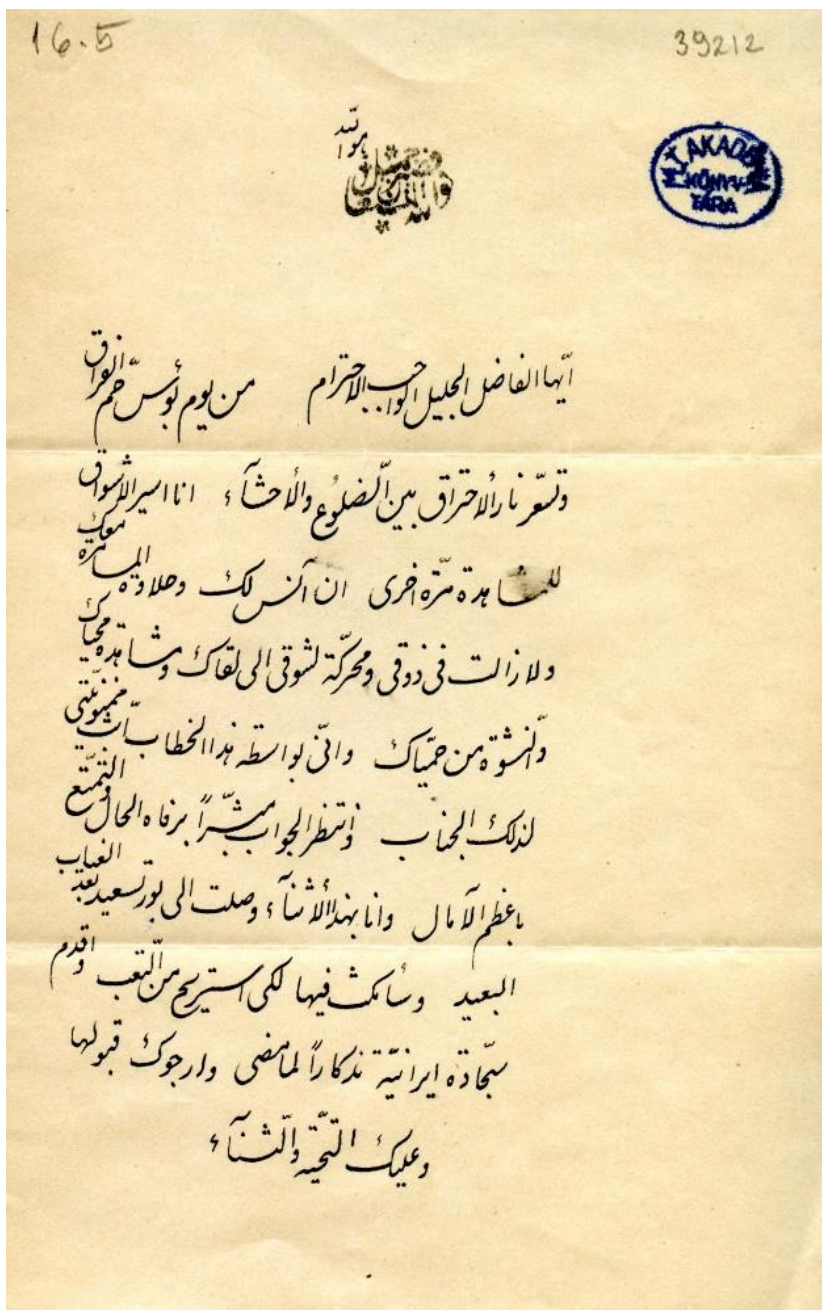 16.5
39212
هو الله
M. T. AKADÉMIA KÖNYVTÁRA
ايّها الفاضل الجليل الواجب الاحترام من يوم بؤس حمّ الفراق
وتسعّر نار الاحتراق بين الضلوع والأحشآء انا اسير الاشواق
للمشاهدة مرّة اخرى ان آنس لك وحلاوة المسامرة معك
ولا زالت فى ذوقى ومحركّة لشوقى الى لقاك ومشاهدة محياك
والنشوة من حميّاك وانّى بواسطة هذا الخطاب ابثّ ممنونيّتى
لذلك الجناب وانتظر الجواب مبشّراً برفاه الحال والتمتّع
باعظم الآمال وانا بهذا الأثنآء وصلت الى بورتسعيد بعد الغياب
البعيد وسأمكث فيها لكى استريح من التعب واقدم
سجّادة ايرانيّة تذكاراً لما مضى وارجوك قبولها
وعليك التحيّة والثنآء